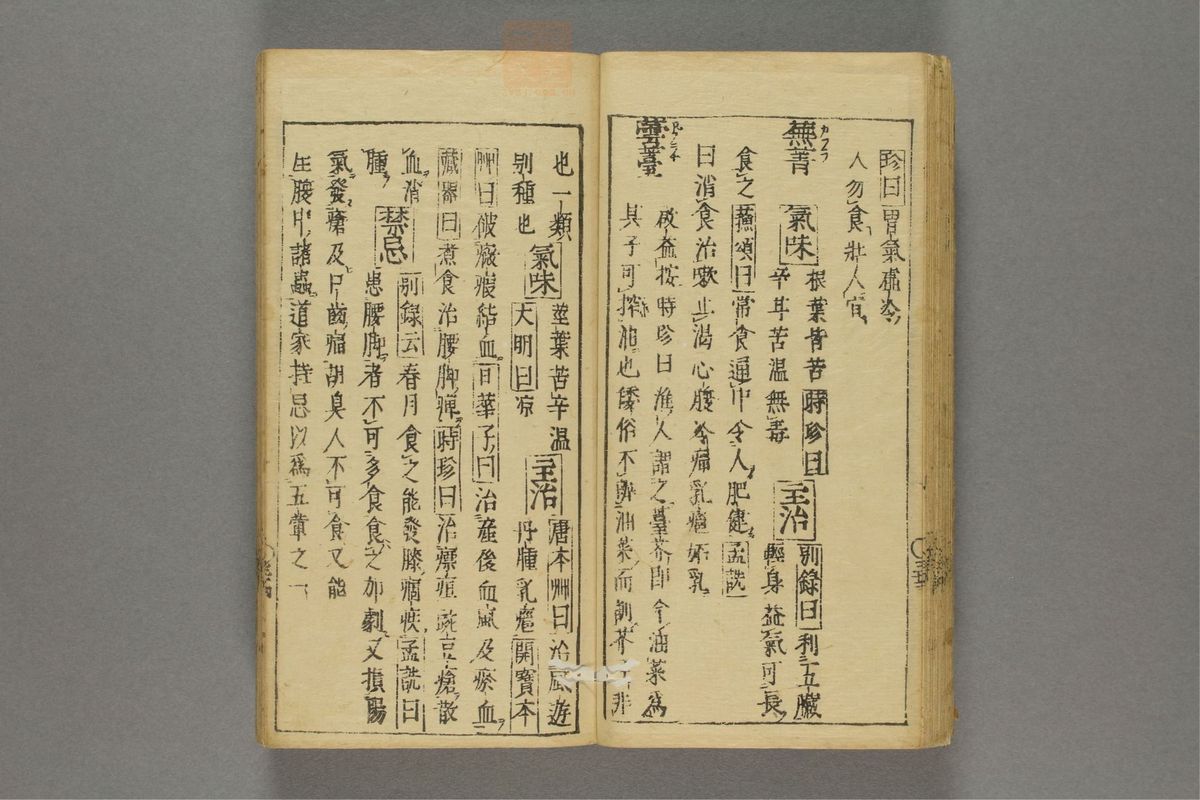 珍曰胃氣虛冷
人勿食壯人宜
蕪菁 氣味 根葉皆苦 時珍曰
カブラ
辛甘苦温無毒 主治 別錄曰 利五臟
輕身益氣可長
食之 蘇頌曰 常食通中令人肥健 孟詵
曰消食治嗽止渴心腹冷痛乳癰妬乳
蕓薹
啟益按時珍曰淮人謂之薹芥即今油菜為
其子可搾油也倭俗不辨油菜而謂芥子非
也一類
別種也 氣味 莖葉苦辛温
大明曰凉 主治 唐本艸曰治風遊
丹腫乳癰 開寶本
艸曰破癥瘕結血 日華子曰 治產後血風及瘀血
藏器曰 煮食治腰脚痺 時珍曰 治瘭疽豌豆瘡散
血消
腫 禁忌 別錄云 春月食之能發膝痼疾 孟詵曰
患腰脚者不可多食食之加劇又損陽
氣發瘡及口齒痛胡臭人不可食又能
生腹中諸蟲道家持忌以為五葷之一